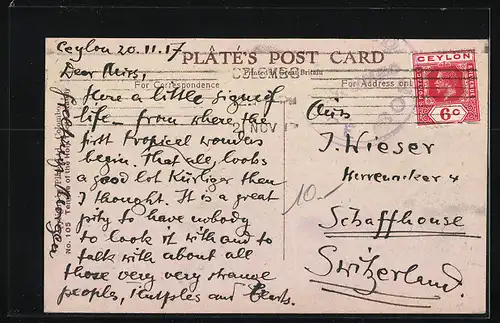 Ceylon 20.11.17
PLÂTÉ'S POST CARD
Printed in Great Britain
For Correspondence
For Address only
COLOMBO
NOV
CEYLON
6c
Dear Miss,
Here a little sign of
life – from where the
first Tropical wonders
begin. That all, loobs
a good lot Kürliger then
I thought. It is a great
pity to have nobody
to look it with and to
talk with about all
those very very strange
peoples, and
Miss
J. Wieser
4
Schaffhouse
Switzerland.
10.–
No. 105